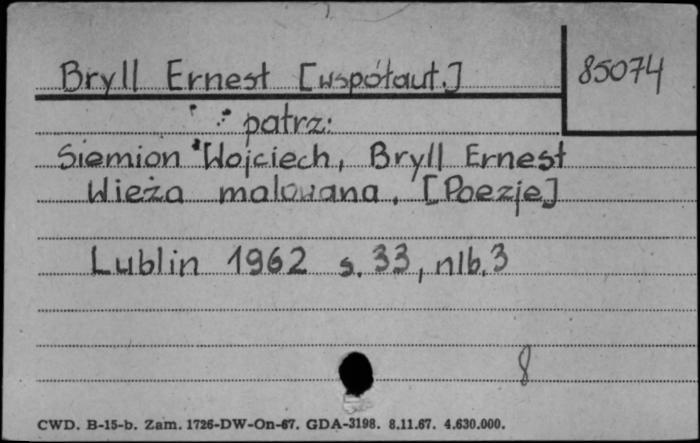 Bryll Ernest [współaut.]
85074
patrz:
Siemion Wojciech, Bryll Ernest
Wieża malowana, [Poezje]
Lublin 1962 s. 33, nlb. 3
8
CWD. B-15-b. Zam. 1726-DW-On-67. GDA-3198. 8.11.67. 4.630.000.